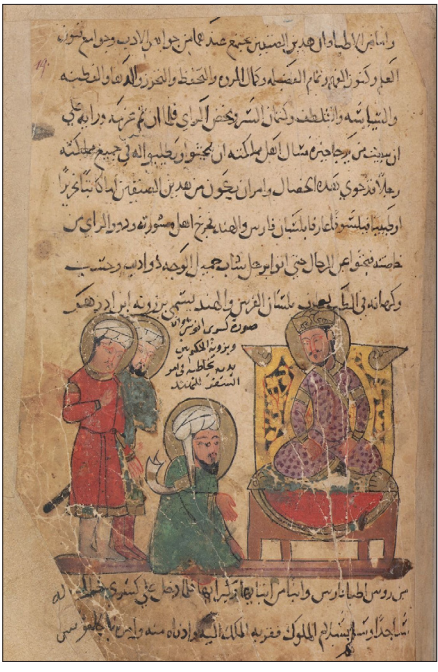 واما من الاطبا وان هذين الصنفين يجتمع عندهما من جواهر الادب وجوامع فنون
العلم وكنوز الفهم وتمام الفضيله وكمال المروه والتحفظ والتحرز والدها والفطنه
والسياسه والتلطف وكتمان السر وبعض الراي فلما ان تم عزمه ورايه على
ان يبعث من سال اهل مملكته ان يبحثوا ويطلبوا له في جميع مملكته
رجلا قد حوي هذه الخصال وامر ان يكون من هذين الصنفين اما كاتبا نحريرا
او طبيبا فيلسوفا عارفا بلسان فارس والهند فخرج اهل مشورته وذوو الراي من
خاصته فبحثوا عن الرجال حتى اتوا برجل شاب جميل الوجه ذو ادب وحسب
وكهانه في الطب يعرف بلسان الفرس والهند يسمى برزويه ابن
صورة كسرى انوشروان
وبرزويه الحكيم بين
يديه يخاطبه في امر
السفر للهند
من روس اطبا فارس فلما دخل على كسرى خر له
ساجدا وسلم بسلام الملوك فقربه الملك اليه وادناه منه